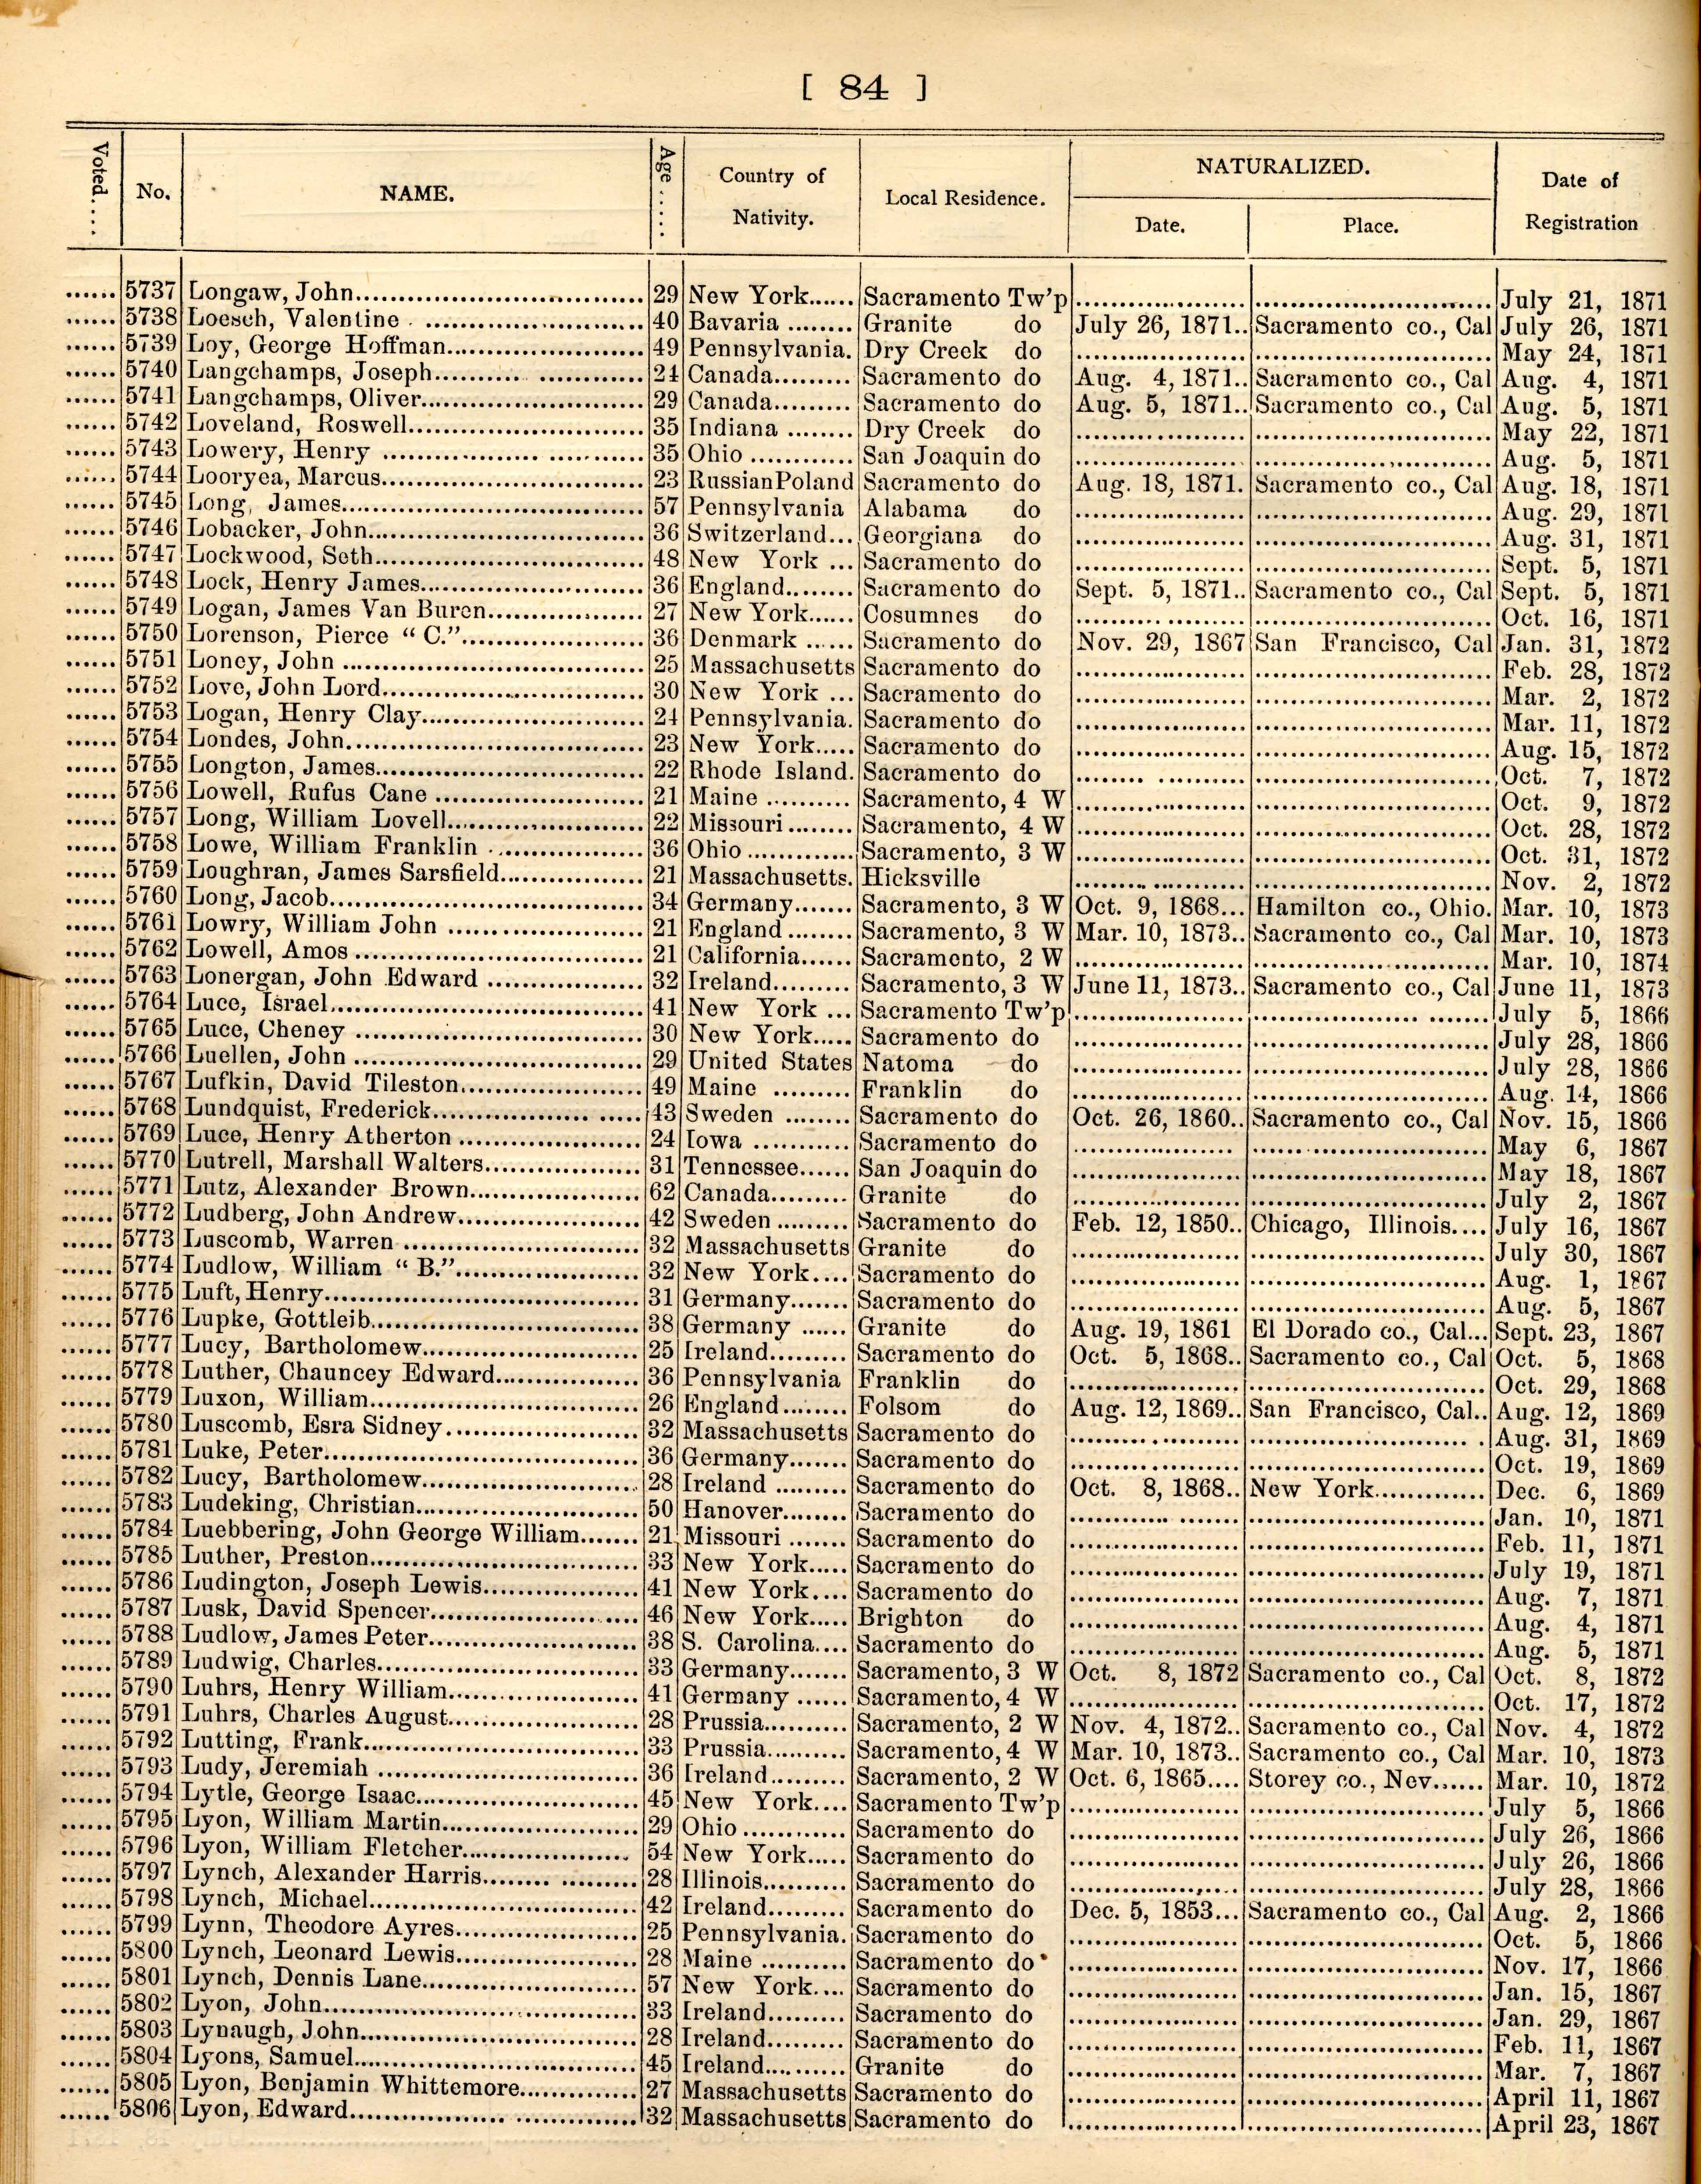 [ 84 ]
Voted.... No. NAME. Age...... Country of Nativity. Local Residence. NATURALIZED. Date. Place. Date of Registration
5737 Longaw, John 29 New York Sacramento Tw'p July 21, 1871
5738 Loesch, Valentine 40 Bavaria Granite do July 26, 1871 Sacramento co., Cal July 26, 1871
5739 Loy, George Hoffman 49 Pennsylvania. Dry Creek do May 24, 1871
5740 Langchamps, Joseph 24 Canada Sacramento do Aug. 4, 1871 Sacramento co., Cal Aug. 4, 1871
5741 Langchamps, Oliver 29 Canada Sacramento do Aug. 5, 1871 Sacramento co., Cal Aug. 5, 1871
5742 Loveland, Roswell 35 Indiana Dry Creek do May 22, 1871
5743 Lowery, Henry 35 Ohio San Joaquin do Aug. 5, 1871
5744 Looryea, Marcus 23 Russian Poland Sacramento do Aug. 18, 1871. Sacramento co., Cal Aug. 18, 1871
5745 Long, James 57 Pennsylvania Alabama do Aug. 29, 1871
5746 Lobacker, John 36 Switzerland Georgiana do Aug. 31, 1871
5747 Lockwood, Seth 48 New York Sacramento do Sept. 5, 1871
5748 Lock, Henry James 36 England Sacramento do Sept. 5, 1871 Sacramento co., Cal Sept. 5, 1871
5749 Logan, James Van Buren 27 New York Cosumnes do Oct. 16, 1871
5750 Lorenson, Pierce "C." 36 Denmark Sacramento do Nov. 29, 1867 San Francisco, Cal Jan. 31, 1872
5751 Loney, John 25 Massachusetts Sacramento do Feb. 28, 1872
5752 Love, John Lord 30 New York Sacramento do Mar. 2, 1872
5753 Logan, Henry Clay 24 Pennsylvania. Sacramento do Mar. 11, 1872
5754 Londes, John 23 New York Sacramento do Aug. 15, 1872
5755 Longton, James 22 Rhode Island. Sacramento do Oct. 7, 1872
5756 Lowell, Rufus Cane 21 Maine Sacramento, 4 W Oct. 9, 1872
5757 Long, William Lovell 22 Missouri Sacramento, 4 W Oct. 28, 1872
5758 Lowe, William Franklin 36 Ohio Sacramento, 3 W Oct. 31, 1872
5759 Loughran, James Sarsfield 21 Massachusetts. Hicksville Nov. 2, 1872
5760 Long, Jacob 34 Germany Sacramento, 3 W Oct. 9, 1868 Hamilton co., Ohio. Mar. 10, 1873
5761 Lowry, William John 21 England Sacramento, 3 W Mar. 10, 1873 Sacramento co., Cal Mar. 10, 1873
5762 Lowell, Amos 21 California Sacramento, 2 W Mar. 10, 1874
5763 Lonergan, John Edward 32 Ireland Sacramento, 3 W June 11, 1873 Sacramento co., Cal June 11, 1873
5764 Luce, Israel 41 New York Sacramento Tw'p July 5, 1866
5765 Luce, Cheney 30 New York Sacramento do July 28, 1866
5766 Luellen, John 29 United States Natoma do July 28, 1866
5767 Lufkin, David Tileston 49 Maine Franklin do Aug. 14, 1866
5768 Lundquist, Frederick 43 Sweden Sacramento do Oct. 26, 1860 Sacramento co., Cal Nov. 15, 1866
5769 Luce, Henry Atherton 24 Iowa Sacramento do May 6, 1867
5770 Lutrell, Marshall Walters 31 Tennessee San Joaquin do May 18, 1867
5771 Lutz, Alexander Brown 62 Canada Granite do July 2, 1867
5772 Ludberg, John Andrew 42 Sweden Sacramento do Feb. 12, 1850 Chicago, Illinois July 16, 1867
5773 Luscomb, Warren 32 Massachusetts Granite do July 30, 1867
5774 Ludlow, William "B." 32 New York Sacramento do Aug. 1, 1867
5775 Luft, Henry 31 Germany Sacramento do Aug. 5, 1867
5776 Lupke, Gottleib 38 Germany Granite do Aug. 19, 1861 El Dorado co., Cal Sept. 23, 1867
5777 Lucy, Bartholomew 25 Ireland Sacramento do Oct. 5, 1868 Sacramento co., Cal Oct. 5, 1868
5778 Luther, Chauncey Edward 36 Pennsylvania Franklin do Oct. 29, 1868
5779 Luxon, William 26 England Folsom do Aug. 12, 1869 San Francisco, Cal Aug. 12, 1869
5780 Luscomb, Esra Sidney 32 Massachusetts Sacramento do Aug. 31, 1869
5781 Luke, Peter 36 Germany Sacramento do Oct. 19, 1869
5782 Lucy, Bartholomew 28 Ireland Sacramento do Oct. 8, 1868 New York Dec. 6, 1869
5783 Ludeking, Christian 50 Hanover Sacramento do Jan. 10, 1871
5784 Luebbering, John George William 21 Missouri Sacramento do Feb. 11, 1871
5785 Luther, Preston 33 New York Sacramento do July 19, 1871
5786 Ludington, Joseph Lewis 41 New York Sacramento do Aug. 7, 1871
5787 Lusk, David Spencer 46 New York Brighton do Aug. 4, 1871
5788 Ludlow, James Peter 38 S. Carolina Sacramento do Aug. 5, 1871
5789 Ludwig, Charles 33 Germany Sacramento, 3 W Oct. 8, 1872 Sacramento co., Cal Oct. 8, 1872
5790 Luhrs, Henry William 41 Germany Sacramento, 4 W Oct. 17, 1872
5791 Luhrs, Charles August 28 Prussia Sacramento, 2 W Nov. 4, 1872 Sacramento co., Cal Nov. 4, 1872
5792 Lutting, Frank 33 Prussia Sacramento, 4 W Mar. 10, 1873 Sacramento co., Cal Mar. 10, 1873
5793 Ludy, Jeremiah 36 Ireland Sacramento, 2 W Oct. 6, 1865 Storey co., Nev Mar. 10, 1872
5794 Lytle, George Isaac 45 New York Sacramento Tw'p July 5, 1866
5795 Lyon, William Martin 29 Ohio Sacramento do July 26, 1866
5796 Lyon, William Fletcher 54 New York Sacramento do July 26, 1866
5797 Lynch, Alexander Harris 28 Illinois Sacramento do July 28, 1866
5798 Lynch, Michael 42 Ireland Sacramento do Dec. 5, 1853 Sacramento co., Cal Aug. 2, 1866
5799 Lynn, Theodore Ayres 25 Pennsylvania. Sacramento do Oct. 5, 1866
5800 Lynch, Leonard Lewis 28 Maine Sacramento do Nov. 17, 1866
5801 Lynch, Dennis Lane 57 New York Sacramento do Jan. 15, 1867
5802 Lyon, John 33 Ireland Sacramento do Jan. 29, 1867
5803 Lynaugh, John 28 Ireland Sacramento do Feb. 11, 1867
5804 Lyons, Samuel 45 Ireland Granite do Mar. 7, 1867
5805 Lyon, Benjamin Whittemore 27 Massachusetts Sacramento do April 11, 1867
5806 Lyon, Edward 32 Massachusetts Sacramento do April 23, 1867